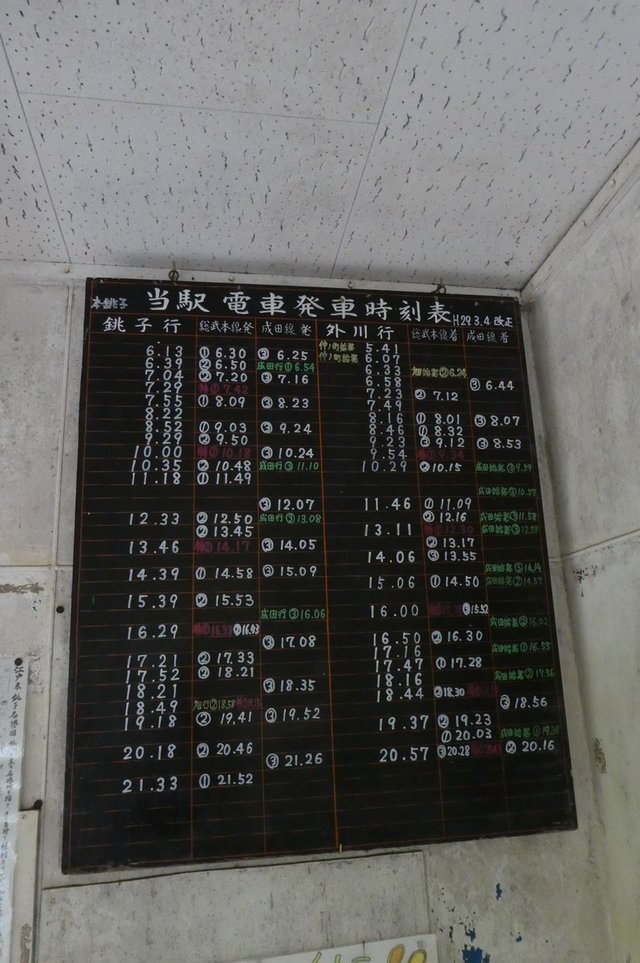 本銚子 当駅電車発車時刻表 H29.3.4 改正
銚子行 総武本線発 成田線発 外川行 総武本線着 成田線着
仲ノ町始発 5.41
6.13 ① 6.30 ③ 6.25 仲ノ町始発 6.07
6.39 ② 6.50 成田行① 6.54 6.33 旭始発② 6.24
7.04 ② 7.20 ③ 7.16 6.58 ③ 6.44
7.29 特① 7.42 7.23 ② 7.12
7.55 ① 8.09 ③ 8.23 7.49
8.22 8.16 ① 8.01 ③ 8.07
8.52 ① 9.03 ③ 9.24 8.46 ① 8.32
9.29 ② 9.50 9.23 ③ 9.12 ③ 8.53
10.00 特① 10.18 ③ 10.24 9.54 特① 9.34
10.35 ② 10.48 成田行③ 11.10 10.29 ② 10.15 成田始発③ 9.39
11.18 ① 11.49
成田始発③ 10.37
③ 12.07 11.46 ① 11.09
12.33 ② 12.50 成田行③ 13.08 ② 12.16 成田始発③ 11.58
② 13.45 13.11 成田始発③ 12.59
13.46 特① 14.17 ③ 14.05 ② 13.17
14.06 ② 13.55
14.39 ① 14.58 ③ 15.09 成田始発③ 14.14
15.06 ① 14.50 成田始発② 14.57
15.39 ② 15.53
成田行③ 16.06 16.00 ③ 15.52
16.29 特① 16.38 ② 16.43 成田始発② 16.02
③ 17.08 16.50 ② 16.30
17.16 成田始発① 16.55
17.21 ② 17.33 17.47 ① 17.28
17.52 ② 18.21 18.16 成田始発② 17.56
18.21 ③ 18.35 18.44 ② 18.30
18.49 旭行② 18.58 ③ 18.56
19.18 ② 19.41 ③ 19.52 19.37 ② 19.23
① 20.03 成田始発① 19.38
20.18 ② 20.46 ③ 21.26 20.57 ③ 20.28 ② 20.16
21.33 ① 21.52